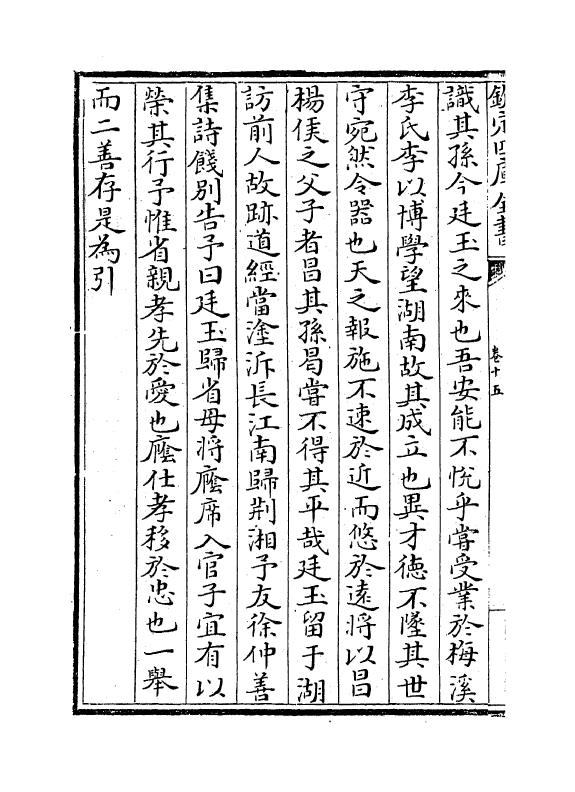 欽定四庫全書
卷十五
識其孫今廷玉之來也吾安能不悅乎嘗受業於梅溪
李氏李以博學望湖南故其成立也異才徳不墜其世
守宛然令器也天之報施不速於近而悠於遠將以昌
楊侯之父子者昌其孫曷嘗不得其平哉廷玉留于湖
訪前人故跡道經當塗泝長江南歸荆湘予友徐仲善
集詩餞別告予曰廷玉歸省母將廕席入官子宜有以
榮其行予惟省親孝先於愛也廕仕孝移於忠也一舉
而二善存是為引